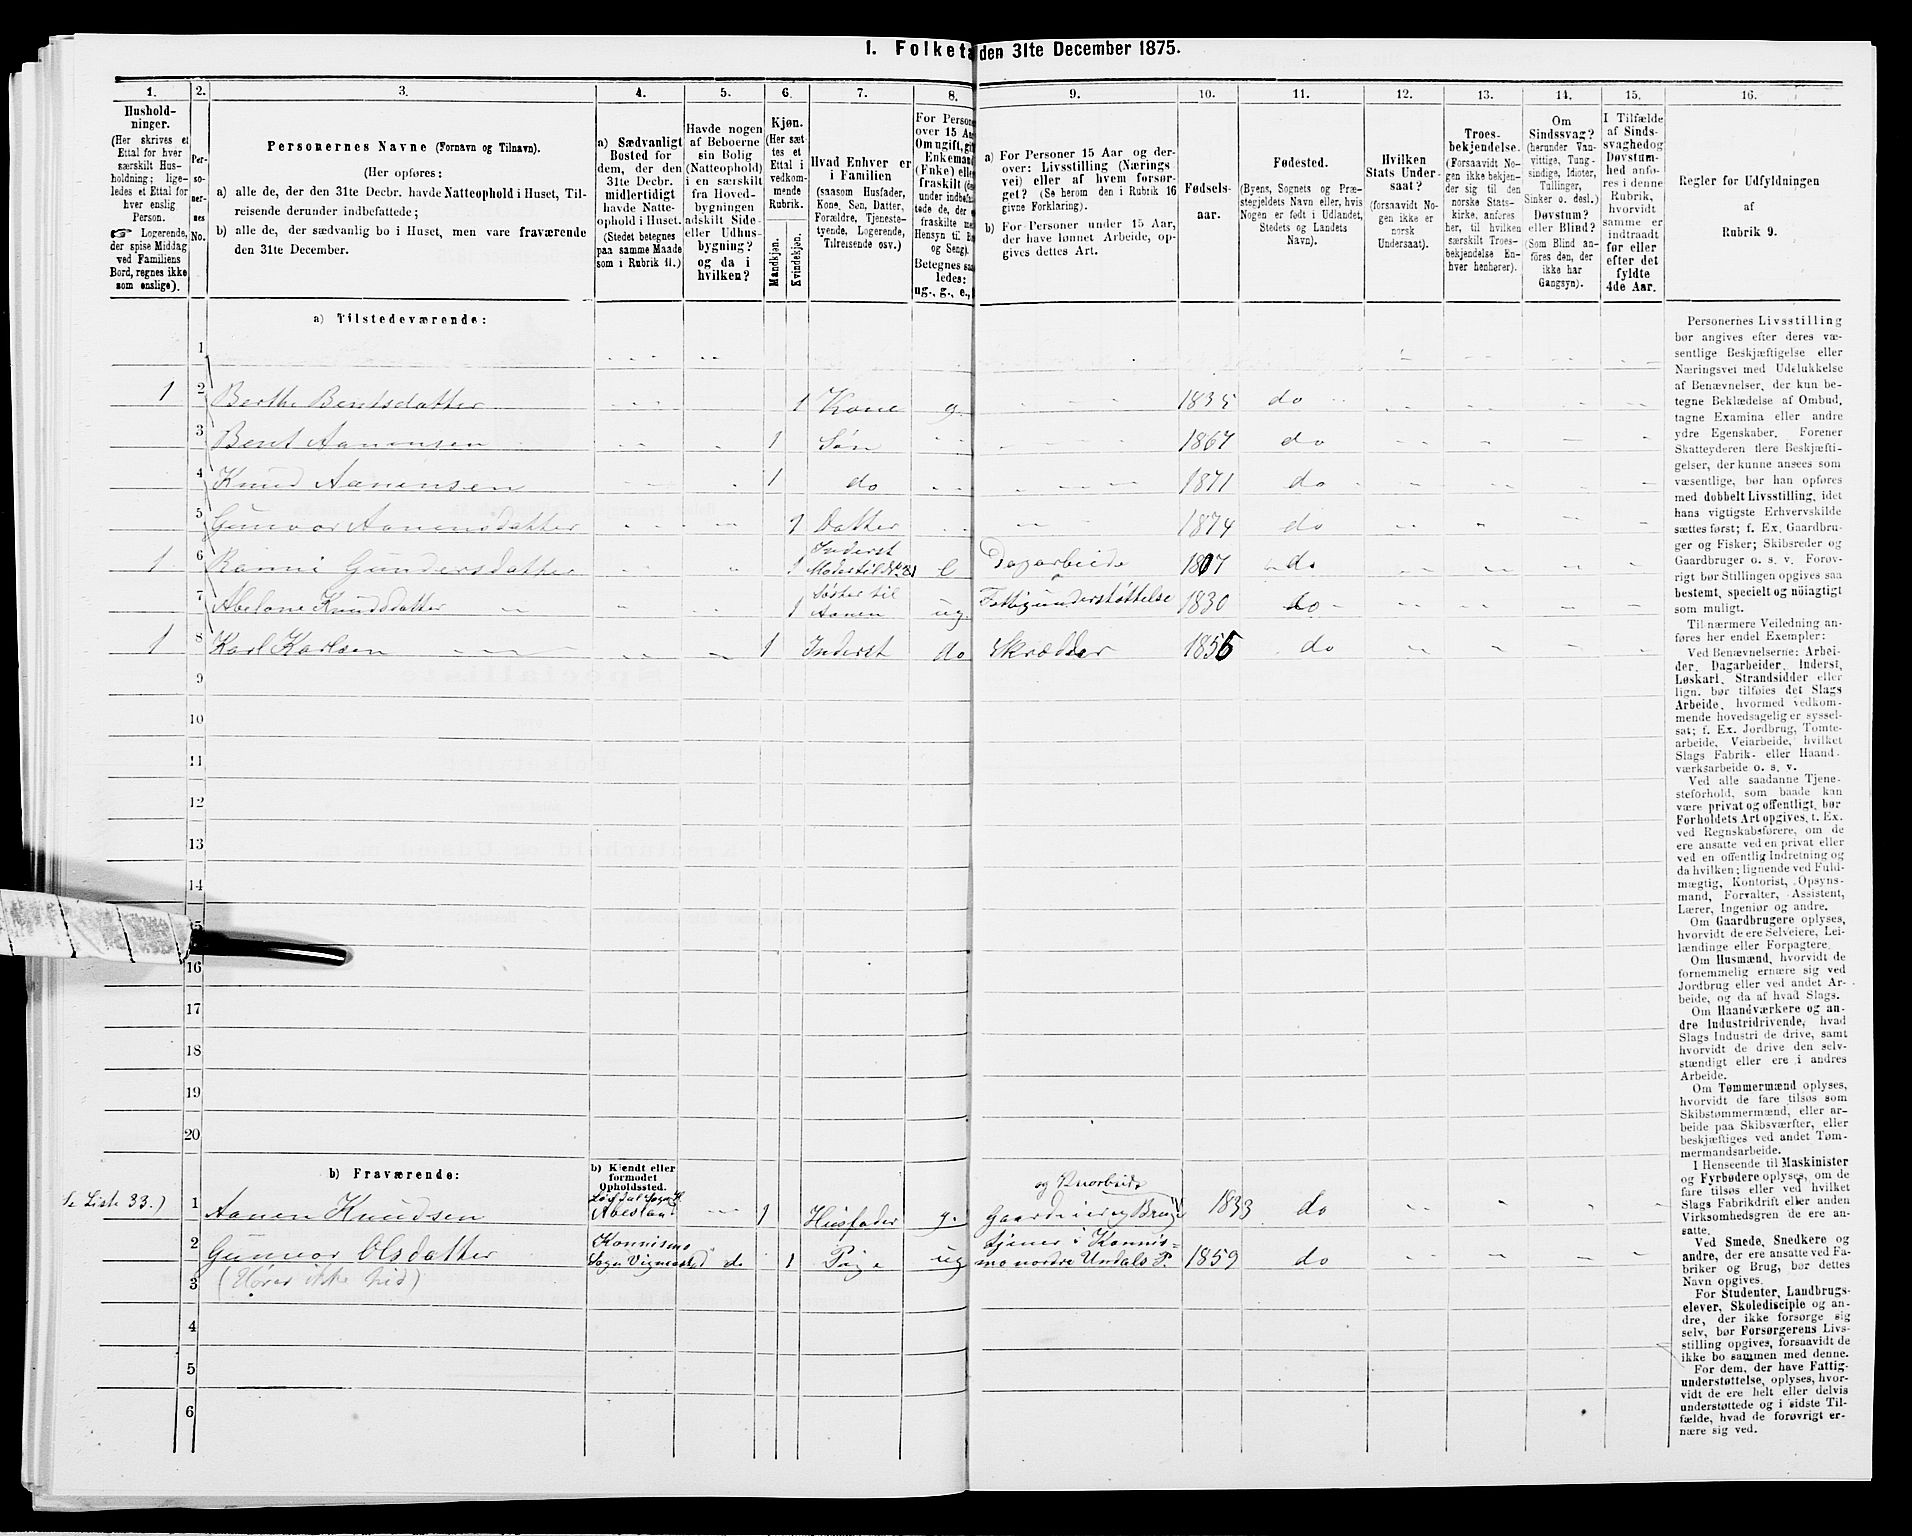 1. Folketæ den 31te December 1875.
1. 2. 3. 4. 5. 6. 7. 8. 9. 10. 11. 12. 13. 14. 15. 16.
Hushold-
ninger.
(Her skrives et
Ettal for hver
særskilt Hus-
holdning; lige-
ledes et Ettal for
hver enslig
Person.
☞ Logerende,
der spise Middag
ved Familiens
Bord, regnes ikke
som enslige).
Per-
so-
ner-
nes
No.
Personernes Navne (Fornavn og Tilnavn).
(Her opføres:
a) alle de, der den 31te Decbr. havde Natteophold i Huset, Til-
reisende derunder indbefattede;
b) alle de, der sædvanlig bo i Huset, men vare fraværende
den 31te December.
a) Sædvanligt
Bosted for
dem, der den
31te Decbr.
midlertidigt
havde Natte-
ophold i Huset.
(Stedet betegnes
paa samme Maade
som i Rubrik 11.)
Havde nogen
af Beboerne
sin Bolig
(Natteophold)
i en særskilt
fra Hoved-
bygningen
adskilt Side-
eller Udhus-
bygning?
og da i
hvilken?
Kjøn.
(Her sæt-
tes et
Ettal i
vedkom-
mende
Rubrik.
Mandkjøn.
Kvindekjøn.
Hvad Enhver er
i Familien
(saasom Husfader,
Kone, Søn, Datter,
Forældre, Tjeneste-
tyende, Logerende,
Tilreisende osv.)
For Person
over 15 Aa
Om ugift, gif
Enkemand
(Enke) elle
fraskilt
under indbef
tede de, der
fraskilte
Hensyn til
og Seng).
Betegnes saa
ledes:
ug., g., e.,
a) For Personer 15 Aar og der-
over: Livsstilling (Nærings-
vei) eller af hvem forsør-
get? (Se herom den i Rubrik 16
givne Forklaring).
b) For Personer under 15 Aar,
der have lønnet Arbeide, op-
gives dettes Art.
Fødsels-
aar.
Fødested.
(Byens, Sognets og Præ-
stegjeldets Navn eller, hvis
Nogen er født i Udlandet,
Stedets og Landets
Navn).
Hvilken
Stats Under-
saat?
(forsaavidt No-
gen ikke er
norsk
Undersaat).
Troes-
bekjendelse.
(Forsaavidt No-
gen ikke bekjen-
der sig til den
norske Stats-
kirke, anføres
her, til hvilken
særskilt Troes-
bekjendelse En-
hver henhører).
Om
Sindssvag?
(herunder Van-
vittige, Tung-
sindige, Idioter,
Tullinger,
Sinker o. desl.)
Døvstum?
eller Blind?
(Som Blind an-
føres den, der
ikke har
Gangsyn).
I Tilfælde
af Sinds-
svaghed og
Døvstum-
hed anfø-
res i denne
Rubrik,
hvorvidt
samme er
indtraadt
før eller
efter det
fyldte
4de Aar.
Regler for Udfyldningen
af
Rubrik 9.
a) Tilstedeværende:
1
1 2 Berthe Bentsdatter 1 Kone g. 1835 do
3 Bent Aanensen 1 Søn 1867 do
4 Knud Aanensen 1 do 1871 do
5 Gunvor Aanensdatter 1 Datter 1874 do
1 6 Ranni Gundersdatter 1 Inderst Moder til e Dagarbeide 1807 do
7 Abelone Knudsdatter 1 Søster til Aanen ug. Fattigunderstøttelse 1830 do
1 8 Karl Karlsen 1 Inderst do Skrædder 1856 do
9
10
11
12
13
14
15
16
17
18
19
20
b) Fraværende:
b) Kjendt eller
formodet
Opholdssted.
Se Liste 33.) 1 Aanen Knudsen 1 Husfader g. Gaardeier og Bruger 1833 do
2 Gunvor Olsdatter Konnismo Sogn do 1 Pige ug tjener i Konnis-
mo nordre Undals P. 1859 do
3 (Hører ikke hid)
4
5
6
Personernes Livsstilling
bør angives efter deres væ-
sentlige Beskjæftigelse eller
Næringsvei med Udelukkelse
af Benævnelser, der kun be-
tegne Beklædelse af Ombud,
tagne Examina eller andre
ydre Egenskaber. Forener
Skatteyderen flere Beskjæfti-
gelser, der kunne ansees som
væsentlige, bør han opføres
med dobbelt Livsstilling, idet
hans vigtigste Erhvervskilde
sættes først; f. Ex. Gaardbru-
ger og Fisker; Skibsreder og
Gaardbruger o. s. v. Forøv-
rigt bør Stillingen opgives saa
bestemt, specielt og nöiagtigt
som muligt.
Til nærmere Veiledning an-
føres her endel Exempler:
Ved Benævnelserne: Arbei-
der, Dagarbeider, Inderst,
Løskarl, Strandsidder eller
lign. bør tilføies det Slags
Arbeide, hvormed vedkom-
mende hovedsagelig er syssel-
sat; f. Ex. Jordbrug, Tomte-
arbeide, Veiarbeide, hvilket
Slags Fabrik- eller Haand-
værksarbeide o. s. v.
Ved alle saadanne Tjene-
steforhold, som baade kan
være privat og offentligt, bør
Forholdets Art opgives, t. Ex.
ved Regnskabsførere, om de
ere ansatte ved en privat eller
ved en offentlig Indretning og
da hvilken; lignende ved Fuld-
mægtig, Kontorist, Opsyns-
mand, Forvalter, Assistent,
Lærer, Ingeniør og andre.
Om Gaardbrugere oplyses,
hvorvidt de ere Selveiere, Lei-
lændinge eller Forpagtere.
Om Husmænd, hvorvidt de
fornemmelig ernære sig ved
Jordbrug eller ved andet Ar-
beide, og da af hvad Slags.
Om Haandværkere og an-
dre Industridrivende, hvad
Slags Industri de drive, samt
hvorvidt de drive den selv-
stændigt eller ere i andres
Arbeide.
Om Tømmermænd oplyses,
hvorvidt de fare tilsøs som
Skibstømmermænd, eller ar-
beide paa Skibsværfter, eller
beskjæftiges ved andet Tøm-
mermandsarbeide.
I Henseende til Maskinister
og Fyrbødere oplyses, om de
fare tilsøs eller ved hvilket
Slags Fabrikdrift eller anden
Virksomhedsgren de ere an-
satte.
Ved Smede, Snedkere og
andre, der ere ansatte ved Fa-
briker og Brug, bør dettes
Navn opgives.
For Studenter, Landbrugs-
elever, Skoledisciple og an-
dre, der ikke forsørge sig
selv, bør Forsørgerens Livs-
stilling opgives, forsaavidt de
ikke bo sammen med denne.
For dem, der have Fattig-
understøttelse, oplyses, hvor-
vidt de ere helt eller delvis
understøttede og i sidste Til-
fælde, hvad de forøvrigt er-
nære sig ved.